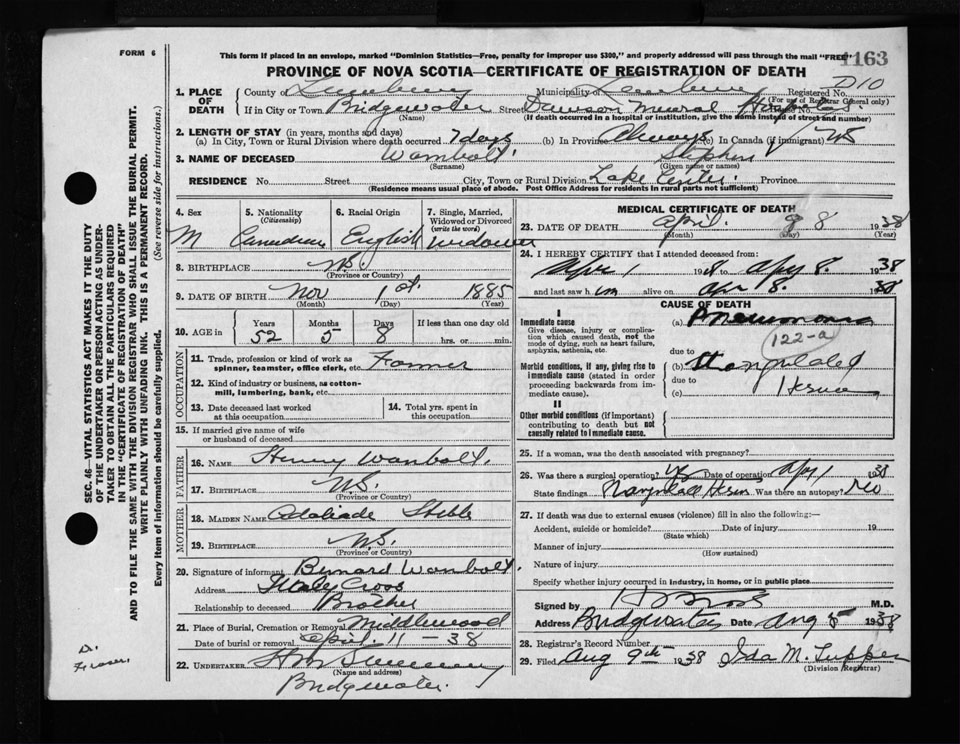 FORM 6
This form if placed in an envelope, marked "Dominion Statistics—Free, penalty for improper use $300," and properly addressed will pass through the mail "FREE"
1163
PROVINCE OF NOVA SCOTIA—CERTIFICATE OF REGISTRATION OF DEATH
SEC. 46—VITAL STATISTICS ACT MAKES IT THE DUTY
OF THE UNDERTAKER OR PERSON ACTING AS UNDER-
TAKER TO OBTAIN ALL THE PARTICULARS REQUIRED
IN THE "CERTIFICATE OF REGISTRATION OF DEATH"
AND TO FILE THE SAME WITH THE DIVISION REGISTRAR WHO SHALL ISSUE THE BURIAL PERMIT.
WRITE PLAINLY WITH UNFADING INK. THIS IS A PERMANENT RECORD.
Every item of information should be carefully supplied. (See reverse side for instructions.)
1. PLACE OF DEATH
County of Lunenburg Municipality of Lunenburg Registered No. D10
(For use of Registrar General only)
If in City or Town Bridgewater Street Dawson Memorial Hospital No.
(Name) (If death occurred in a hospital or institution, give the name instead of street and number)
2. LENGTH OF STAY (in years, months and days)
(a) In City, Town or Rural Division where death occurred 7 days (b) In Province Always (c) In Canada (if immigrant)
3. NAME OF DECEASED Wambolt Stephen
(Surname) (Given name or names)
RESIDENCE No. Street City, Town or Rural Division Lake Center Province
(Residence means usual place of abode. Post Office Address for residents in rural parts not sufficient)
4. Sex 5. Nationality (Citizenship) 6. Racial Origin 7. Single, Married, Widowed or Divorced (write the word)
M Canadian English Widower
8. BIRTHPLACE N.S.
(Province or Country)
9. DATE OF BIRTH Nov 1st. 1885
(Month) (Day) (Year)
10. AGE in Years Months Days If less than one day old
52 5 8 hrs. or min.
OCCUPATION
11. Trade, profession or kind of work as spinner, teamster, office clerk, etc. Farmer
12. Kind of industry or business, as cotton-mill, lumbering, bank, etc.
13. Date deceased last worked at this occupation
14. Total yrs. spent in this occupation
15. If married give name of wife or husband of deceased
FATHER
16. NAME Henry Wambolt.
17. BIRTHPLACE N.S.
(Province or Country)
MOTHER
18. MAIDEN NAME
19. BIRTHPLACE N.S.
(Province or Country)
20. Signature of informant Bernard Wambolt.
Address
Relationship to deceased Brother
21. Place of Burial, Cremation or Removal Middlewood
Date of burial or removal April 11 - 38
22. UNDERTAKER
(Name and address)
Bridgewater.
Dr. Fraser
MEDICAL CERTIFICATE OF DEATH
23. DATE OF DEATH April 8 1938
(Month) (Day) (Year)
24. I HEREBY CERTIFY that I attended deceased from:
Apr 1 19 to Apr 8. 1938
and last saw him alive on Apr 8. 1938
CAUSE OF DEATH
I
Immediate cause
Give disease, injury or complication which caused death, not the mode of dying, such as heart failure, asphyxia, asthenia, etc.
(a) Pneumonia
122-a
due to
Morbid conditions, if any, giving rise to immediate cause (stated in order proceeding backwards from immediate cause).
(b) Strangulated
due to
(c) Hernia
II
Other morbid conditions (if important) contributing to death but not causally related to immediate cause.
25. If a woman, was the death associated with pregnancy?
26. Was there a surgical operation? Yes Date of operation Apr 1 1938
State findings Strangulated Hernia Was there an autopsy? No
27. If death was due to external causes (violence) fill in also the following:—
Accident, suicide or homicide? Date of injury 19
(State which)
Manner of injury
(How sustained)
Nature of injury
Specify whether injury occurred in industry, in home, or in public place
Signed by M.D.
Address Bridgewater Date Aug 8 1938
28. Registrar's Record Number
29. Filed Aug 9th 1938 Ida M. Tupper
(Division Registrar)